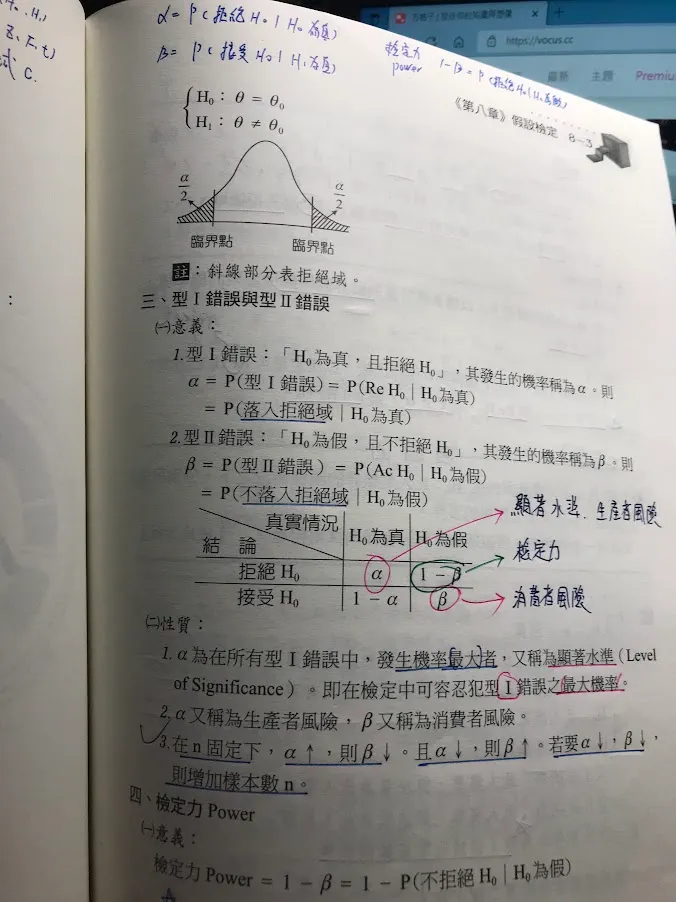 H₀, H₁)
Z, F, t)
式 C.
:
α = P(拒絕 H₀ | H₀ 為真)
β = P(接受 H₀ | H₁ 為真)
檢定力
power
1-β = P(拒絕 H₀ | H₀ 為假)
https://vocus.cc
最新 主題 Premium
《第八章》假設檢定 8－3
H₀：θ = θ₀
H₁：θ ≠ θ₀
α/2 α/2
臨界點 臨界點
註：斜線部分表拒絕域。
三、型 I 錯誤與型 II 錯誤
㈠意義：
1.型 I 錯誤：「H₀為真，且拒絕 H₀」，其發生的機率稱為α。則
α = P(型 I 錯誤) = P(Re H₀ | H₀為真)
= P(落入拒絕域 | H₀為真)
2.型 II 錯誤：「H₀為假，且不拒絕 H₀」，其發生的機率稱為β。則
β = P(型 II 錯誤) = P(Ac H₀ | H₀為假)
= P(不落入拒絕域 | H₀為假)
顯著水準、生產者風險
真實情況 H₀為真 H₀為假
結 論
檢定力
拒絕 H₀ α 1－β
接受 H₀ 1－α β
消費者風險
㈡性質：
1. α為在所有型 I 錯誤中，發生機率最大者，又稱為顯著水準(Level
of Significance)。即在檢定中可容忍犯型 I 錯誤之最大機率。
2. α又稱為生產者風險，β又稱為消費者風險。
3.在 n 固定下，α↑，則β↓。且α↓，則β↑。若要α↓，β↓，
則增加樣本數 n。
四、檢定力 Power
㈠意義：
檢定力 Power = 1－β = 1－P(不拒絕 H₀ | H₀為假)